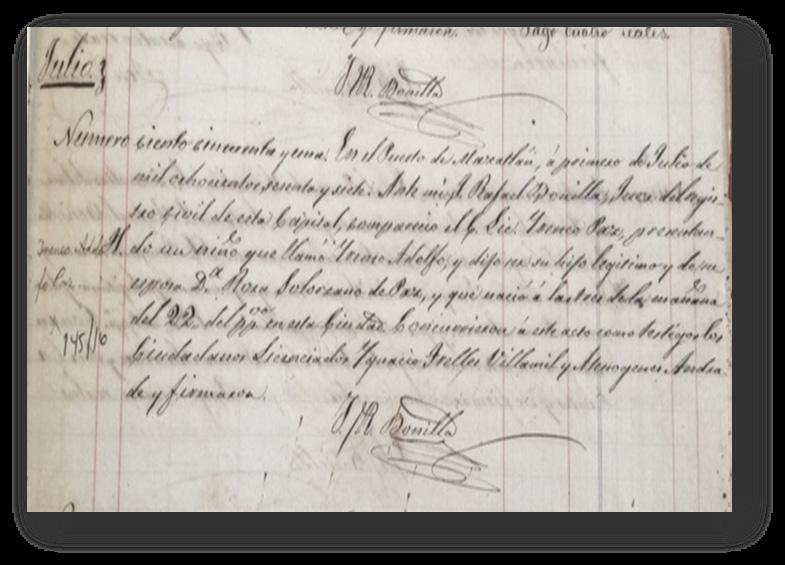 y firmaron. Pago cuatro reales.
Julio.
J. R. Bonilla
Numero ciento cincuenta y uno. En el Puerto de Mazatlán, á primero de Julio de
mil ochocientos sesenta y siete. Ante mi J. Rafael Bonilla, Juez del regis-
tro civil de esta Capital, compareció el C. Lic. Yreneo Paz, presentan-
do un niño que llamó Yreneo Adolfo, y dijo ser su hijo legitimo y de su
esposa Dª Rosa Solorzano de Paz, y que nació á las tres de la mañana
del 22 del ppdo en esta Ciudad. Concurrieron á este acto como testigos los
Ciudadanos Licenciados Ygnacio Tellez Villamil y Atenogenes Andra-
de y firmaron.
Yreneo Adol-
fo Paz
H.
145/10
J. R. Bonilla